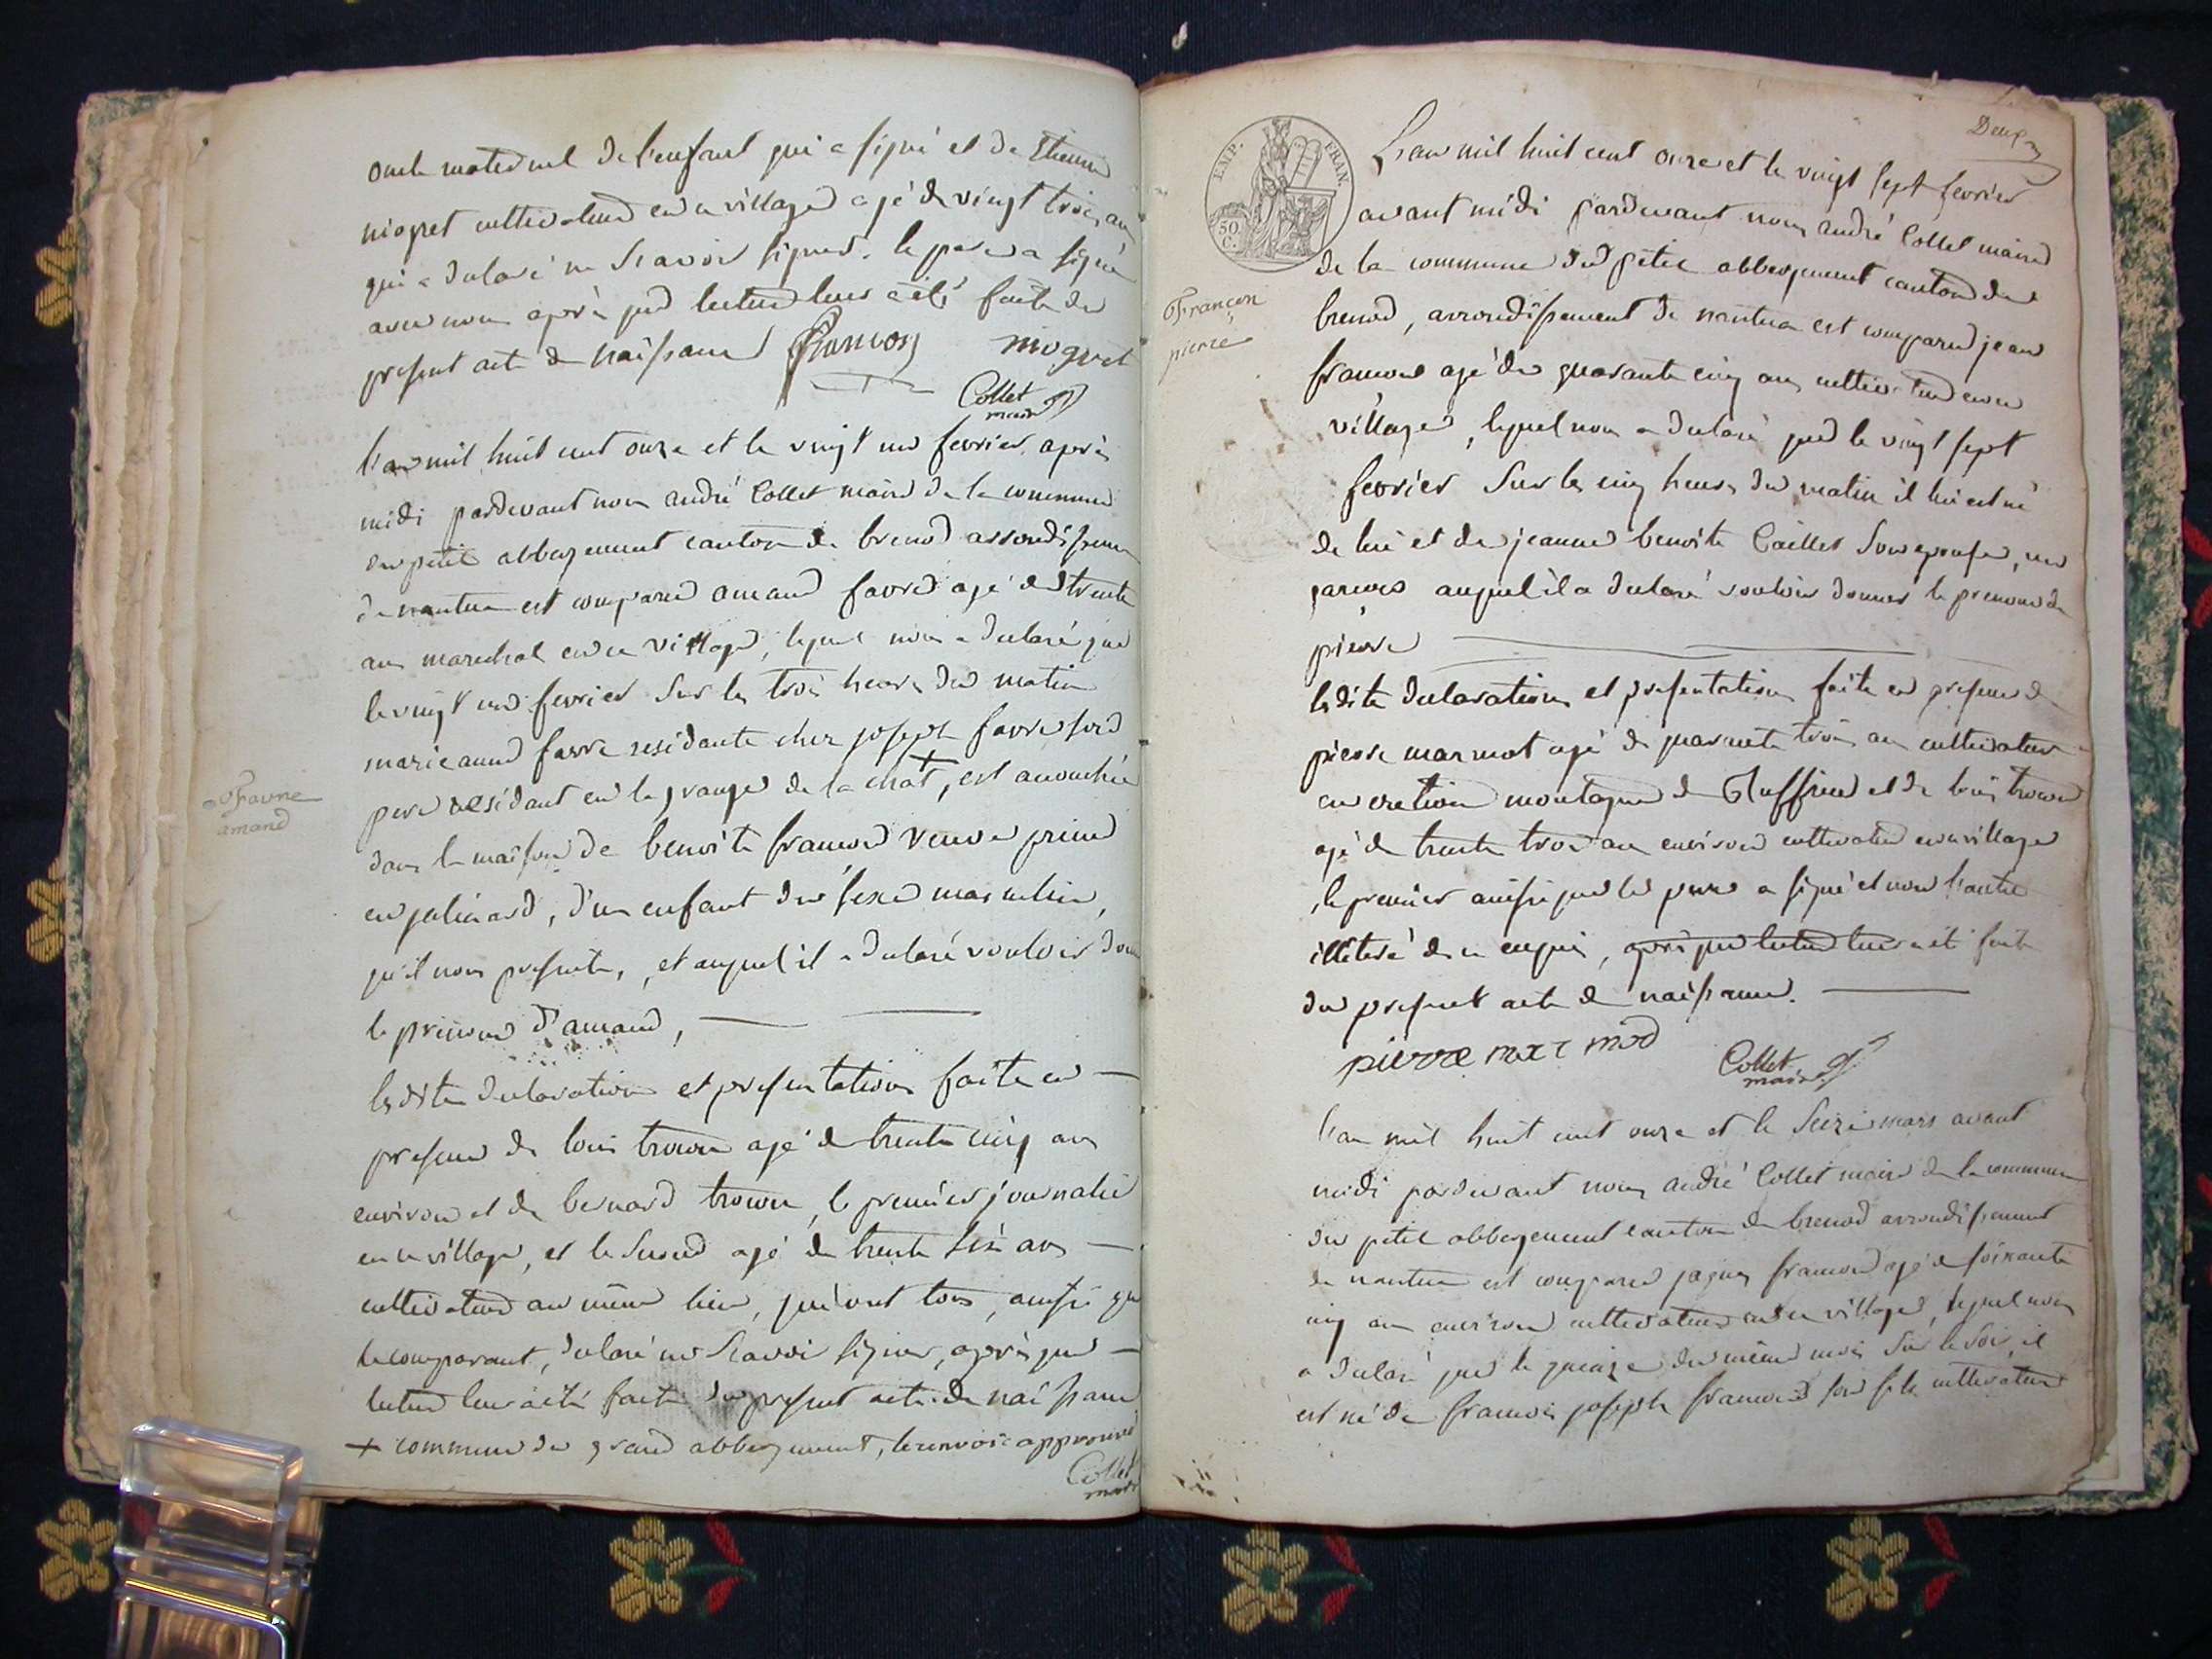 oncle maternel de l'enfant qui a signé et de Etienne
niogret cultivateur en ce village agé de vingt trois ans
qui a déclaré ne scavoir signer. le pere a signé
avec nous après que lecture leur a été faite du
present acte de naissance Francon niogret
Collet
maire
l'an mil huit cent onze et le vingt un fevrier après
midi pardevant nous andré Collet maire de la commune
du petit abbergement canton de brenod arrondissement
de nantua est comparu amand favre agé de trente
ans marechal en ce village, lequel nous a declaré que
le vingt un fevrier sur les trois heures du matin
marie anne favre residante chez joseph favre son
pere residant en la grange de la chat +, est accouchée
dans la maison de benoite francon veuve
en , d'un enfant du sexe masculin,
qu'il nous presente, et auquel il a declaré vouloir donner
le prénom d'amand,
Favre
amand
lesdites declaration et presentation faite en
presence de louis trocon agé de trente cinq ans
environ et de bernard trocon, le premier journalié
en ce village, et le second agé de trente six ans
cultivateur au même lieu, qui ont tous, ainsi que
le comparant, declaré ne scavoir signer, après que
lecture leur a été faite du present acte de naissance
+ commune du grand abbergement, le renvoi approuvé
Collet
maire
Deux
EMP. FRAN.
50 C.
L'an mil huit cent onze et le vingt sept fevrier
avant midi pardevant nous andré Collet maire
de la commune du petit abbergement canton de
brenod, arrondissement de nantua est comparu jean
francon agé de quarante cinq ans cultivateur en ce
village, lequel nous a declaré que le vingt sept
fevrier sur les cinq heures du matin il lui est né
de lui et de jeanne benoite Caillet son epouse, un
garcon auquel il a declaré vouloir donner le prenom de
pierre
Françon
pierre
lesdite declaration et presentation faite en presence de
pierre marmot agé de quarante trois ans cultivateur
en montagne de Ruffieu et de louis trocon
agé de trente trois ans environ cultivateur en ce village
, le premier ainsi que le pere a signé et non l'autre
illiteré de ce enquis, après que lecture leur a été faite
du present acte de naissance.
pierre mar mod
Collet
maire
l'an mil huit cent onze et le seize mars avant
midi pardevant nous andré Collet maire de la commune
du petit abbergement canton de brenod arrondissement
de nantua est comparu jaques francon agé de soixante
cinq ans environ cultivateur en ce village, lequel nous
a declaré que le quinze du même mois sur le soir, il
est né de francois joseph francon son fils cultivateur